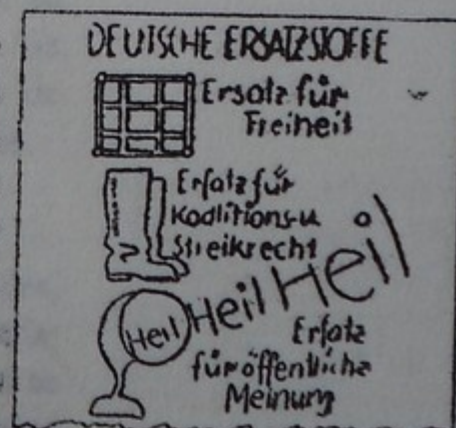 DEUTSCHE ERSATZSTOFFE
Ersatz für
Freiheit
Ersatz für
Koalitions-u
Streikrecht
Heil Heil Heil
Ersatz
für öffentliche
Meinung